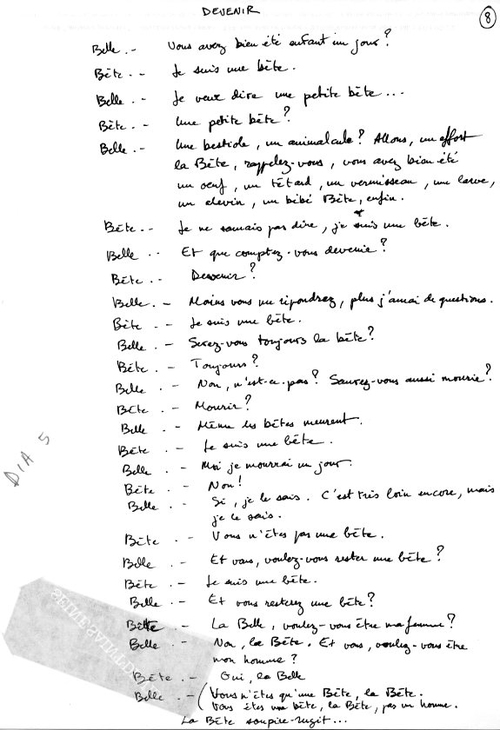 DEVENIR
8
Belle.- Vous avez bien été enfant un jour?
Bête.- Je suis une bête.
Belle.- Je veux dire une petite bête...
Bête.- Une petite bête?
Belle.- Une bestiole, un animalcule? Allons, un effort
la Bête, rappelez-vous, vous avez bien été
un oeuf, un têtard, un vermisseau, une larve,
un alevin, un bébé Bête, enfin.
Bête.- Je ne saurais pas dire, je suis une bête.
Belle.- Et que comptez-vous devenir?
Bête.- Devenir?
Belle.- Moins vous me répondrez, plus j'aurai de questions.
Bête.- Je suis une bête.
Belle.- Serez-vous toujours la bête?
Bête.- Toujours?
Belle.- Non, n'est-ce-pas? Saurez-vous aussi mourir?
Bête.- Mourir?
Belle.- Même les bêtes meurent.
Bête.- Je suis une bête.
Belle.- Moi je mourrai un jour.
Bête.- Non!
Belle.- Si, je le sais. C'est très loin encore, mais
je le sais.
Bête.- Vous n'êtes pas une bête.
Belle.- Et vous, voulez-vous rester une bête?
Bête.- Je suis une bête.
Belle.- Et vous resterez une bête?
Bête.- La Belle, voulez-vous être ma femme?
Belle.- Non, la Bête. Et vous, voulez-vous être
mon homme?
Bête.- Oui, la Belle
Belle.- (Vous n'êtes qu'une Bête, la Bête.
Vous êtes une bête, la Bête, pas un homme.
La Bête soupire-rugit...
DIA 5